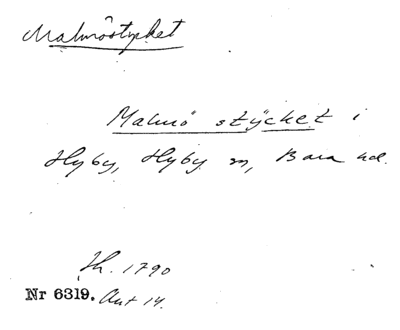 Malmöstycket
Malmö stÿcket i
Hyby, Hyby sn, Bara hd.
Jh. 1790
Nr 6319. Akt 14.